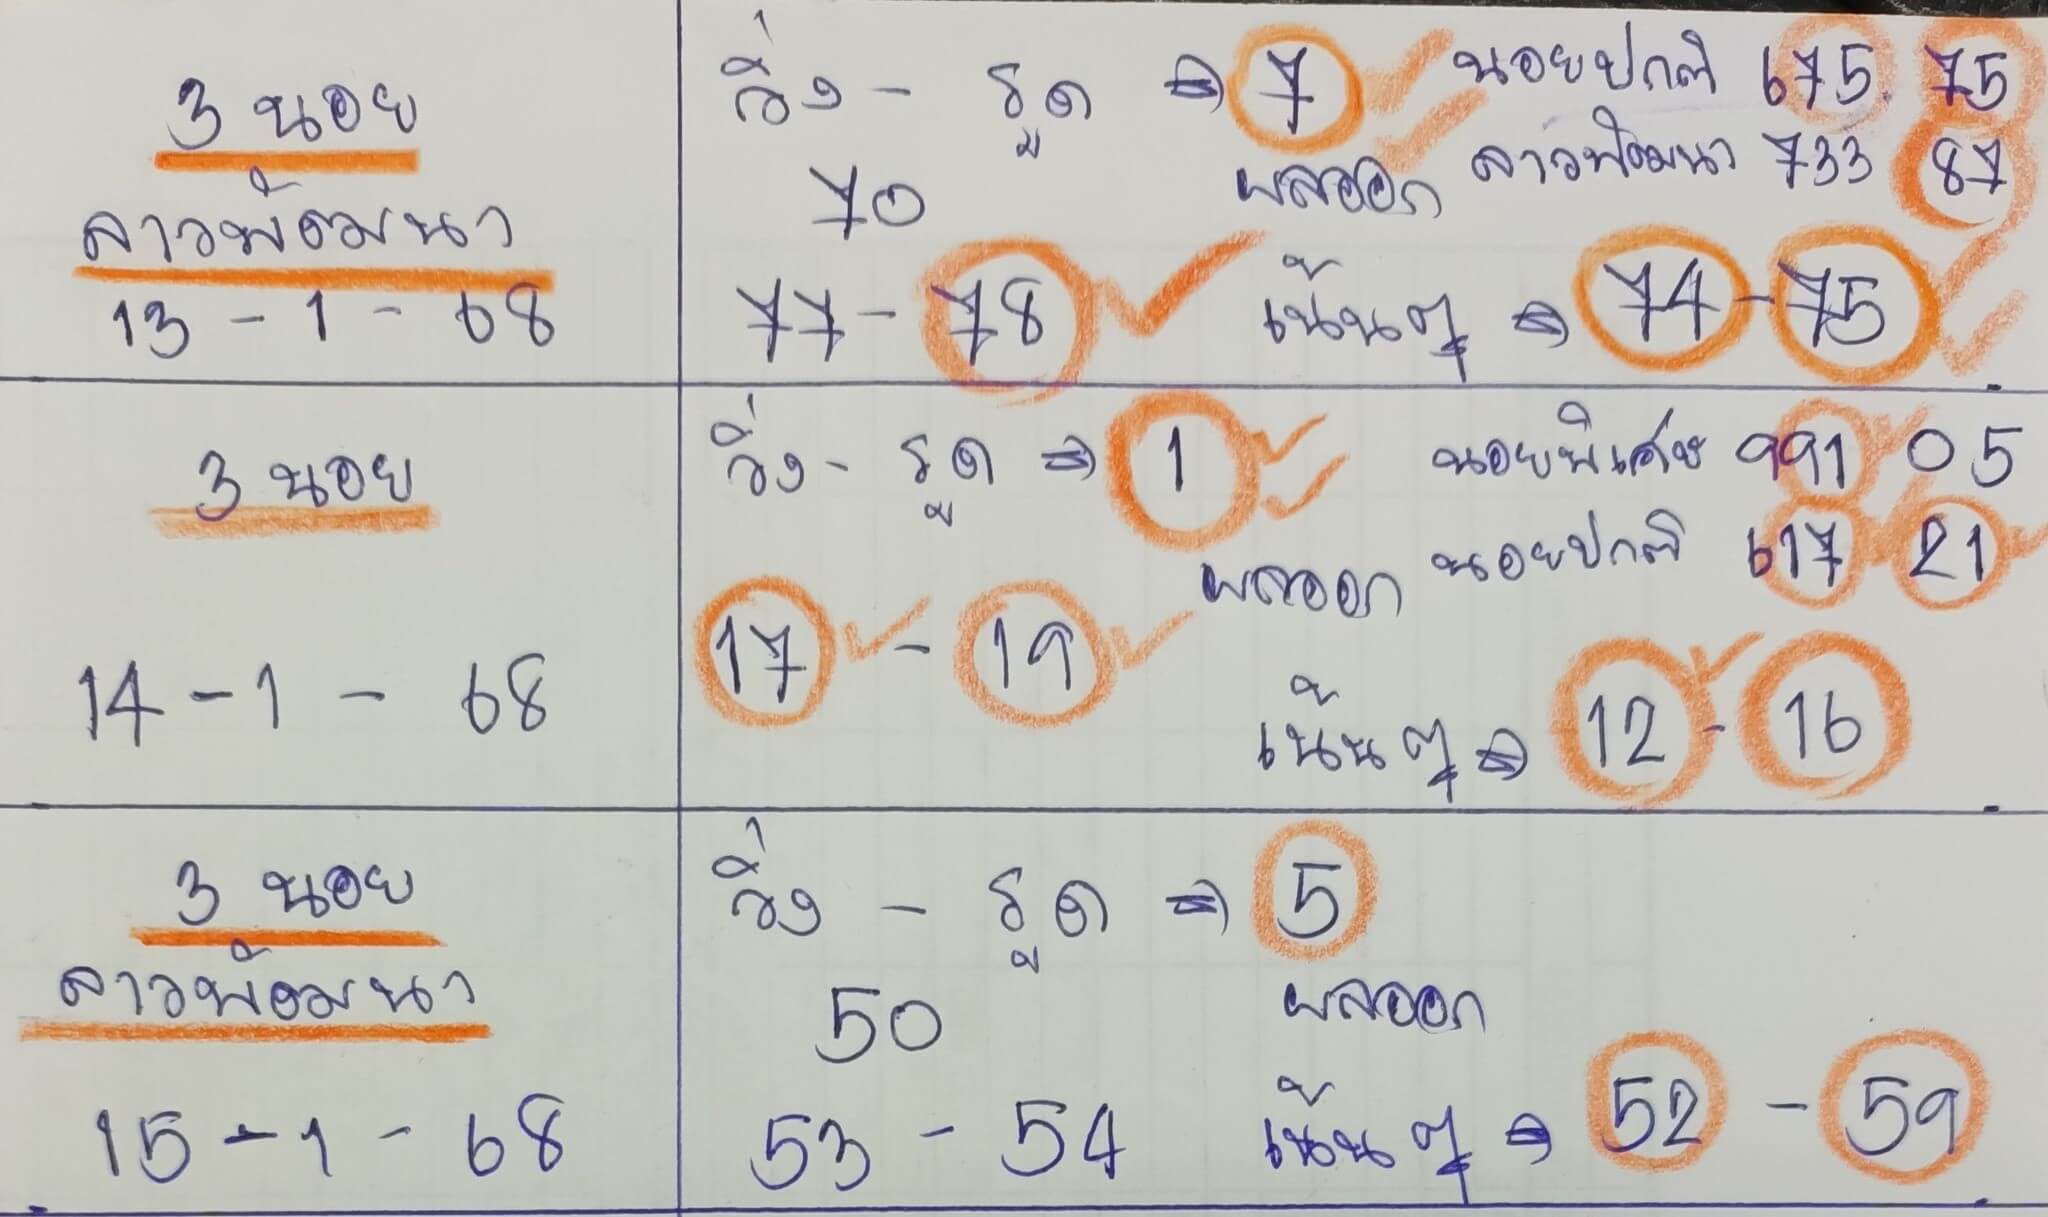 3 นอย
ลาวพัฒนา
13 - 1 - 68
วิ่ง - รูด ⇒ 7 นอยปกติ 675. 75
70 ผลออก ลาวพัฒนา 733 87
77 - 78 เน้นๆ ⇒ 74 - 75
3 นอย
14 - 1 - 68
วิ่ง - รูด ⇒ 1 นอยพิเศษ 991 05
ผลออก นอยปกติ 617 21
17 - 19
เน้นๆ ⇒ 12 - 16
3 นอย
ลาวพัฒนา
15 - 1 - 68
วิ่ง - รูด ⇒ 5
50 ผลออก
53 - 54 เน้นๆ ⇒ 52 - 59